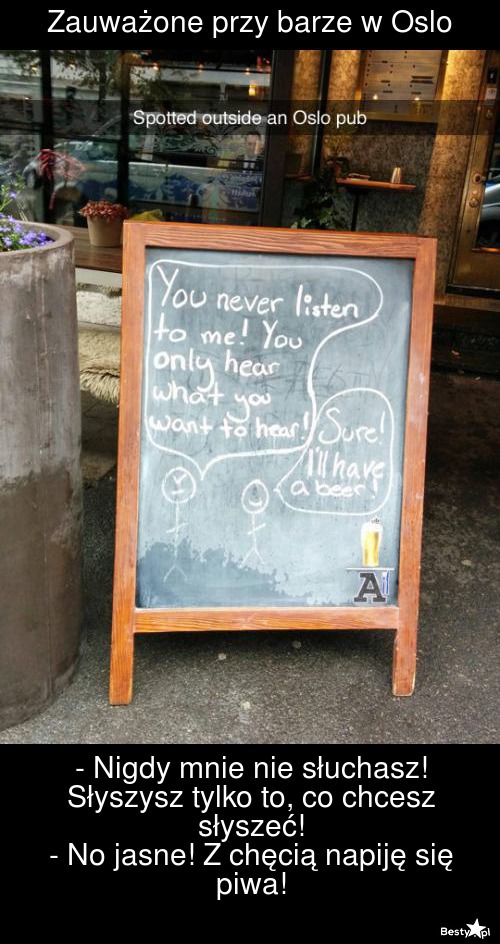 Zauważone przy barze w Oslo
Spotted outside an Oslo pub
You never listen
to me! You
only hear
what you
want to hear!
Sure!
I'll have
a beer!
A
- Nigdy mnie nie słuchasz!
Słyszysz tylko to, co chcesz
słyszeć!
- No jasne! Z chęcią napiję się
piwa!
Besty.pl